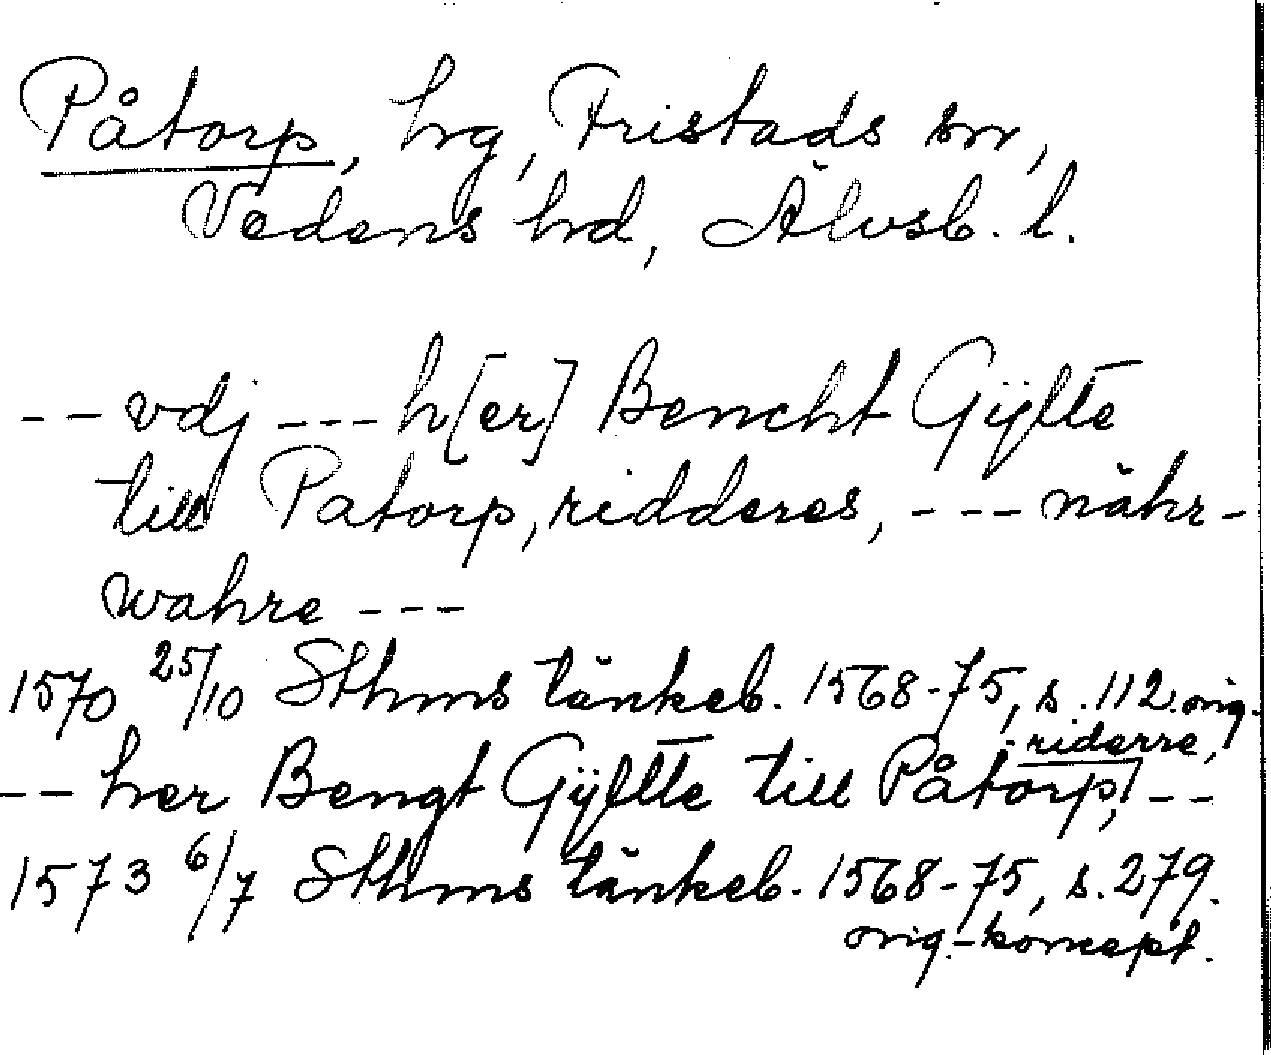 Påtorp, hg, Fristads sn,
Vedens hd, Älvsb. l.
-- vdj --- h[er] Bencht Gÿlte
till Patorp, ridderes, --- nähr-
wahre ---
1570 25/10 Sthms tänkeb. 1568-75, s. 112. orig.
ridderre,
-- her Bengt Gÿllte till Påtorp, --
1573 6/7 Sthms tänkeb. 1568-75, s. 279.
orig.-koncept.